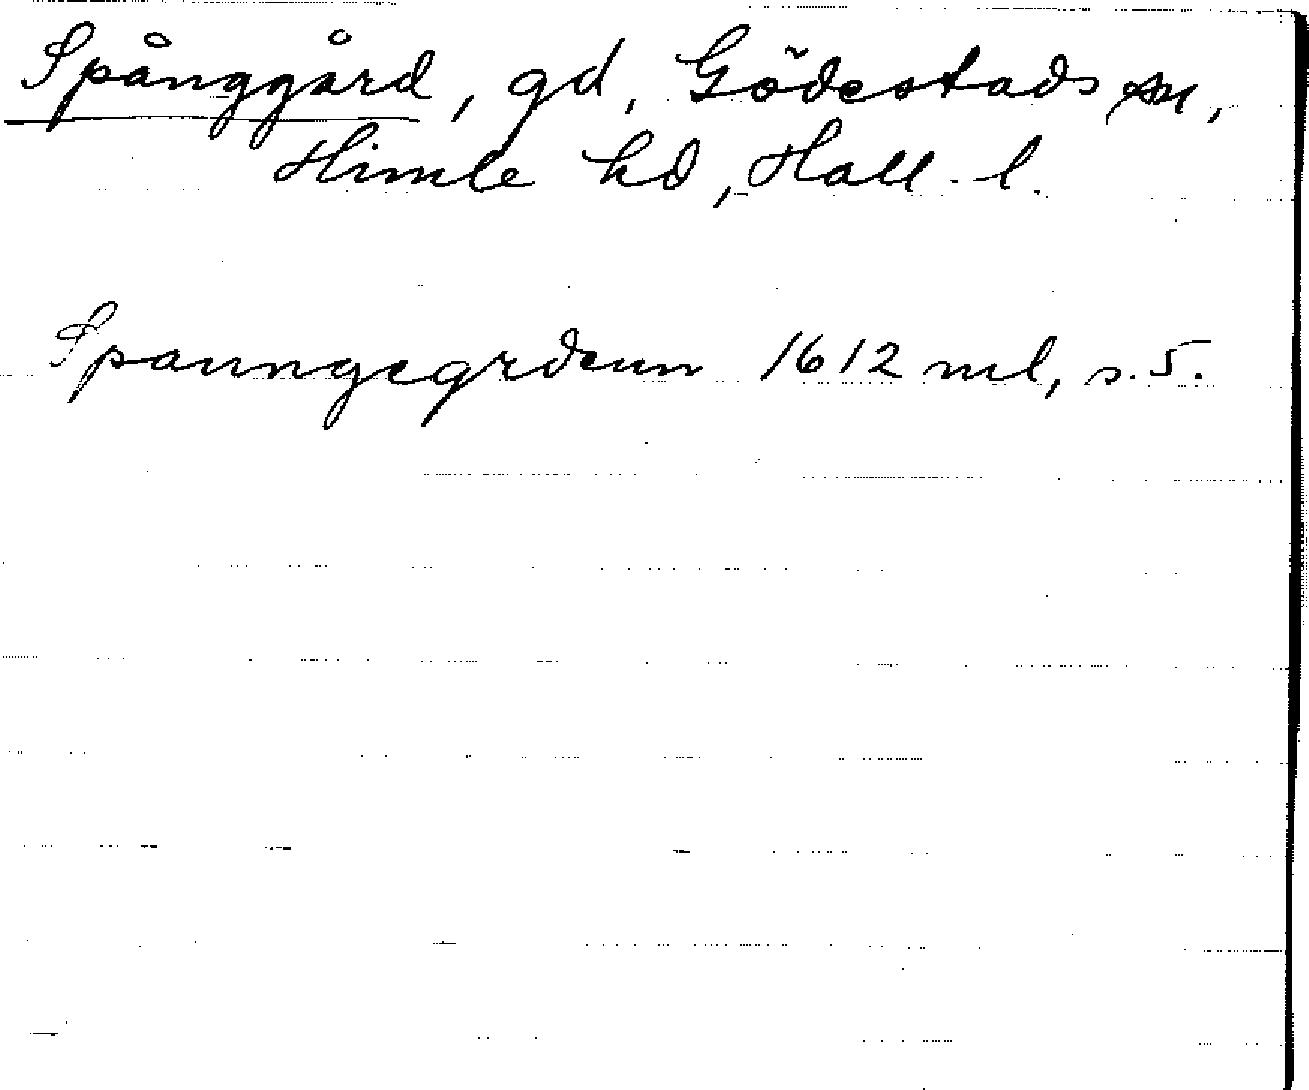 Spånggård, gd, Gödestads sn,
Himle hd, Hall. l.
Spanngegrdenn 1612 ml, s. 5.